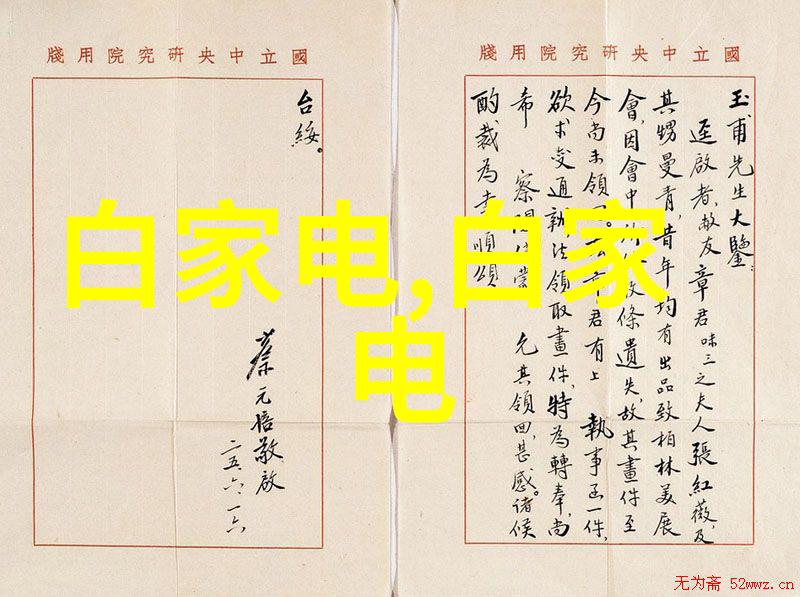 國立中央研究院用牋
玉甫先生大鑒：
逕啟者，敝友章君味三之夫人張紅薇，及
其甥曼青，昔年均有出品致柏林美展
會，因會中收條遺失，故其畫件至
今尚未領回。君有上 執事函一件，
欲求交通領取畫件，特為轉奉，尚
希 察閱蒙 允其領回，甚感。諸候
酌裁為幸順頌
國立中央研究院用牋
台綏。
蔡元培敬啟
二五、六、一六
白家电,白家
电
无为斋 52wwz.cn